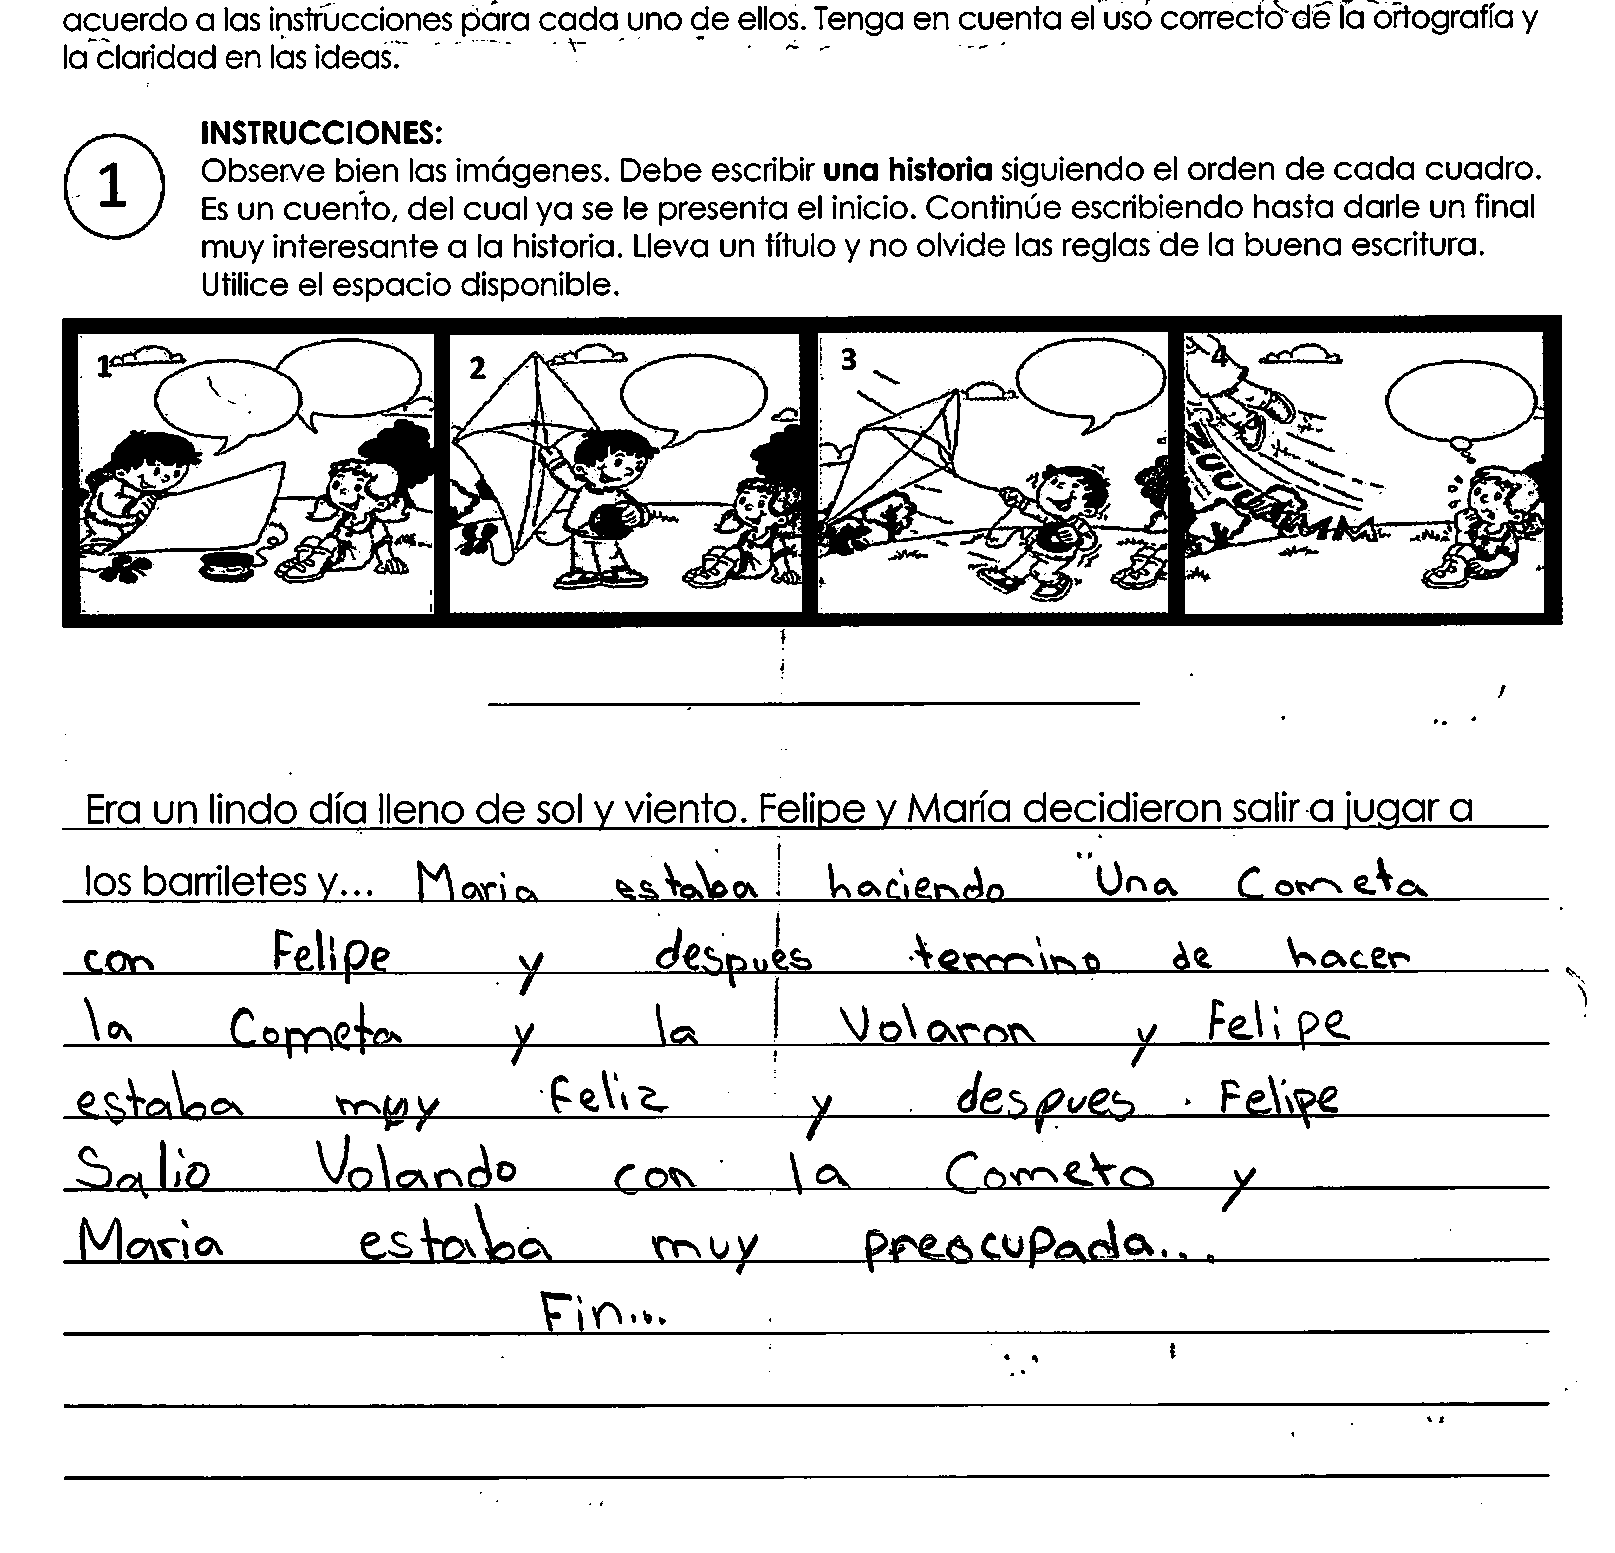 acuerdo a las instrucciones para cada uno de ellos. Tenga en cuenta el uso correcto de la ortografía y
la claridad en las ideas.
INSTRUCCIONES:
1
Observe bien las imágenes. Debe escribir una historia siguiendo el orden de cada cuadro.
Es un cuento, del cual ya se le presenta el inicio. Continúe escribiendo hasta darle un final
muy interesante a la historia. Lleva un título y no olvide las reglas de la buena escritura.
Utilice el espacio disponible.
1
2
3
4
ZUUUUMMM
Era un lindo día lleno de sol y viento. Felipe y María decidieron salir a jugar a
los barriletes y... Maria estaba haciendo Una Cometa
con Felipe y despues termino de hacer
la Cometa y la Volaron y Felipe
estaba muy Feliz y despues Felipe
Salio Volando con la Cometa y
Maria estaba muy preocupada...
Fin...